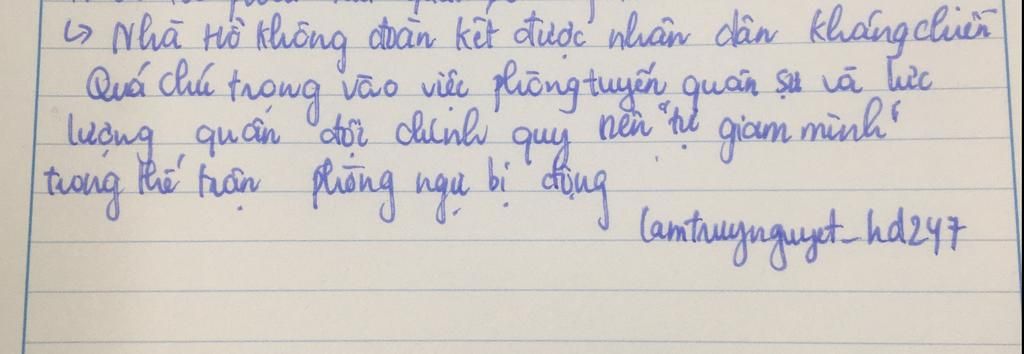 ↳ Nhà Hồ không đoàn kết được nhân dân kháng chiến
Quá chú trọng vào việc phòng tuyến quân sự và lực
lượng quân đội chính quy nên "tự giam mình"
trong thế trận phòng ngự bị động
lamtruynguyet_hd247